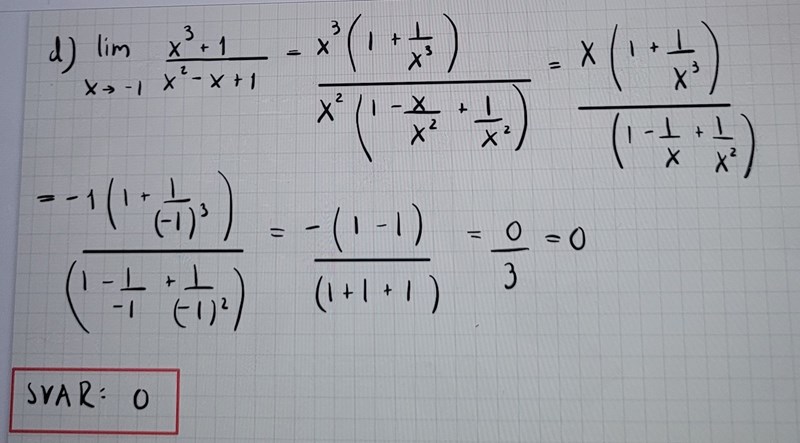 d) lim x→-1 (x³ + 1)/(x² - x + 1) = x³(1 + 1/x³)/(x²(1 - x/x² + 1/x²)) = x(1 + 1/x³)/(1 - 1/x + 1/x²)
= -1(1 + 1/(-1)³)/(1 - 1/-1 + 1/(-1)²) = -(1 - 1)/(1 + 1 + 1) = 0/3 = 0
SVAR: 0